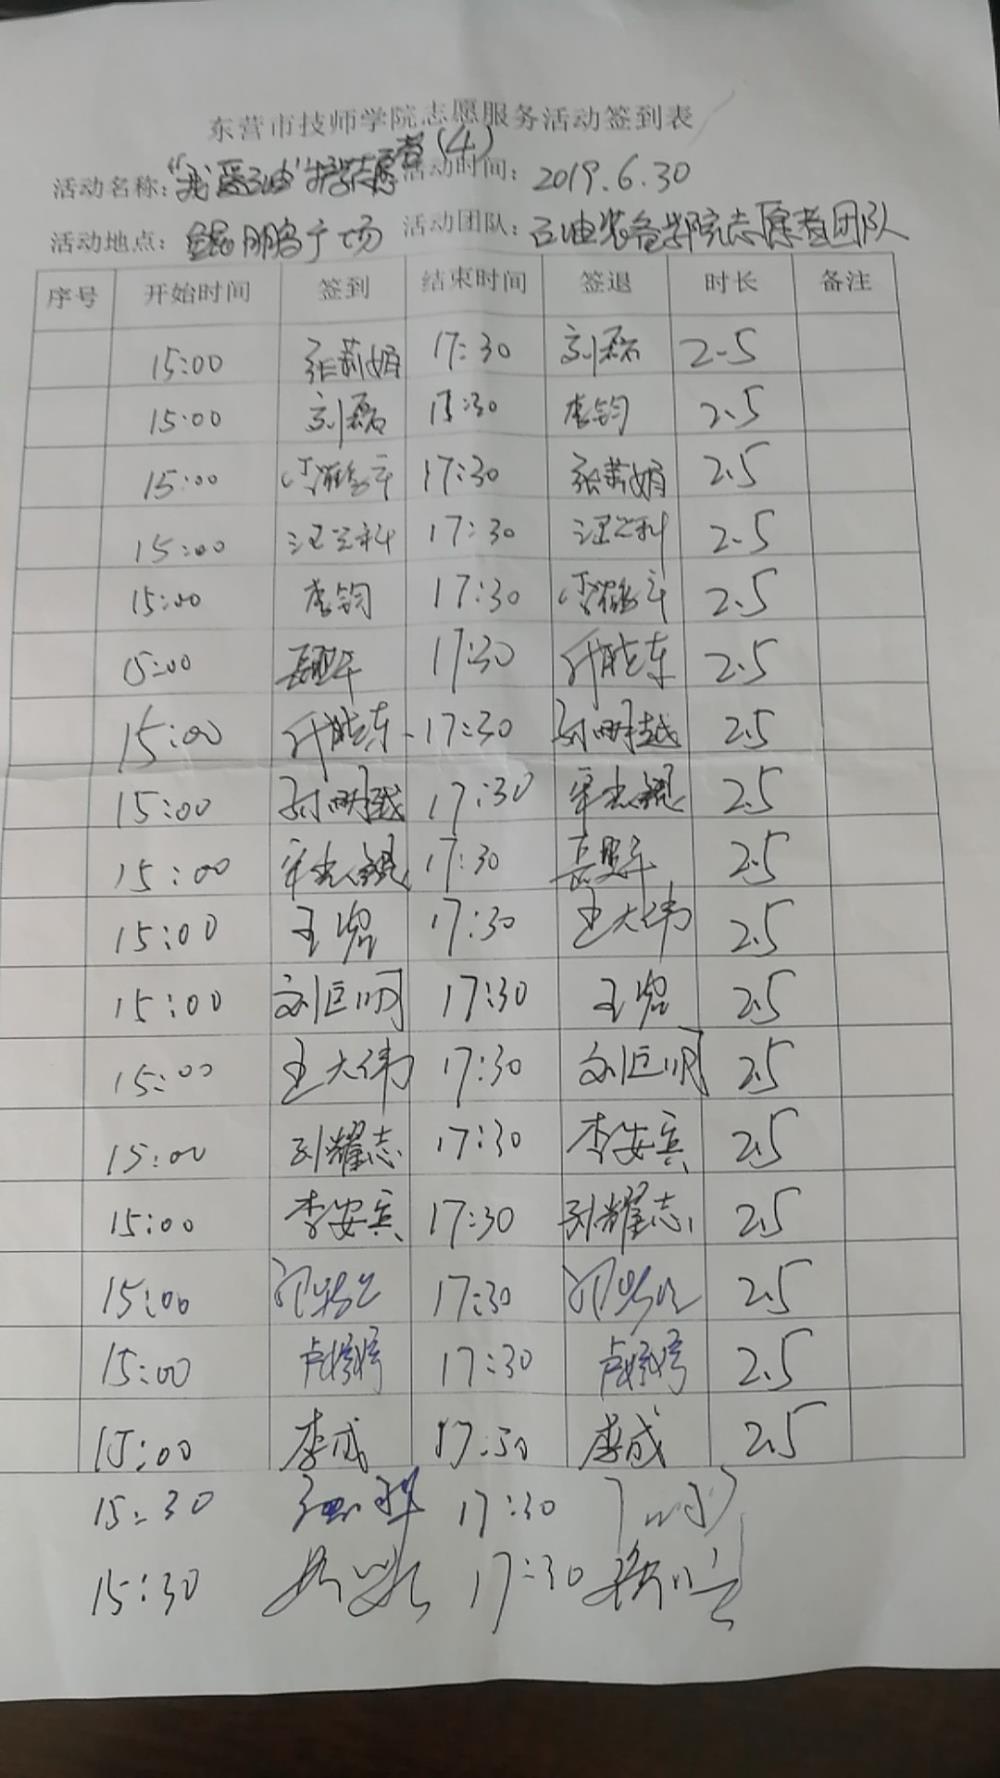 东营市技师学院志愿服务活动签到表
活动名称：“我爱石油” 志愿者(4) 活动时间：2019.6.30
活动地点：鲲鹏广场 活动团队：石油装备学院志愿者团队
序号 开始时间 签到 结束时间 签退 时长 备注
15:00 张莉娟 17:30 刘磊 2.5
15:00 刘磊 17:30 李钧 2.5
15:00 17:30 张莉娟 2.5
15:00 汪兰科 17:30 汪兰科 2.5
15:00 李钧 17:30 2.5
15:00 17:30 胜东 2.5
15:00 胜东 17:30 孙明越 2.5
15:00 孙明越 17:30 2.5
15:00 17:30 2.5
15:00 王 17:30 王大伟 2.5
15:00 刘巨明 17:30 王 2.5
15:00 王大伟 17:30 刘巨明 2.5
15:00 刘耀志 17:30 李安宾 2.5
15:00 李安宾 17:30 刘耀志 2.5
15:00 17:30 2.5
15:00 卢婷婷 17:30 卢婷婷 2.5
15:00 李成 17:30 李成 2.5
15:30 17:30
15:30 17:30